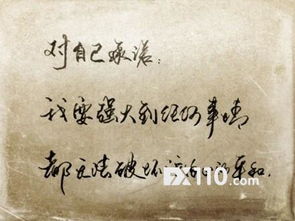 对自己承诺：
我要强大到任何事情
都无法破坏我内心的平和.
FX110.com